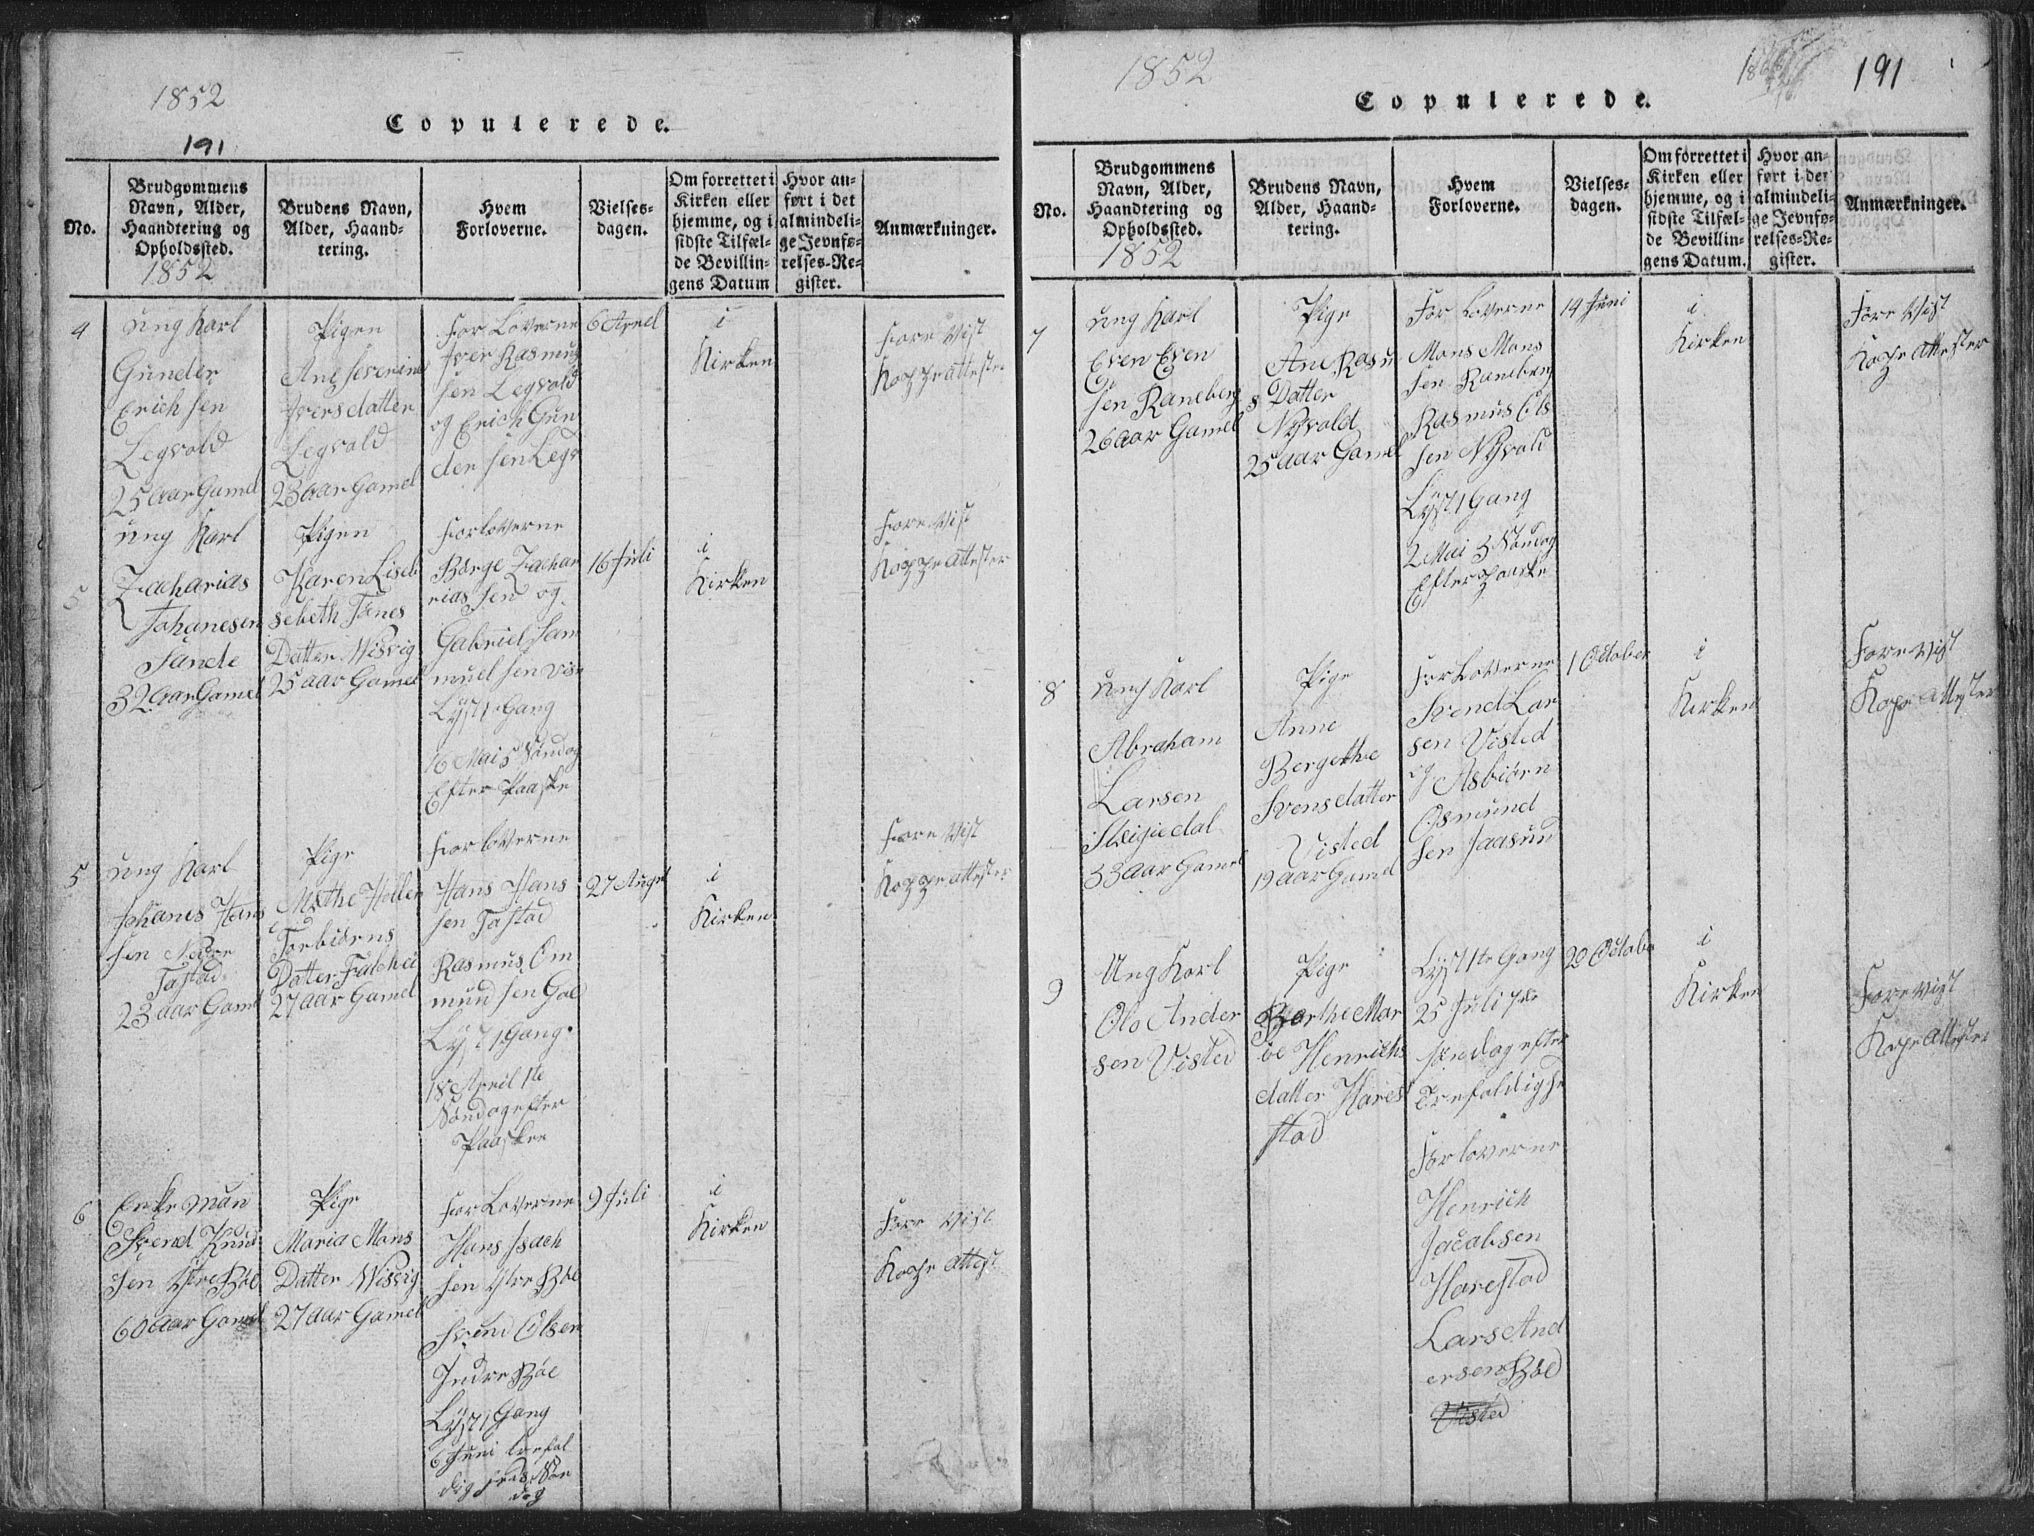 1852
Copulerede.
191
No.
Brudgommens
Navn, Alder,
Haandtering og
Opholdssted.
1852
Brudens Navn,
Alder, Haand-
tering.
Hvem
Forloverne.
Vielses-
dagen.
Om forrettet i
Kirken eller
hjemme, og i
sidste Tilfæl-
de Bevillin-
gens Datum
Hvor an-
ført i det
almindeli-
ge Jevnfø-
relses-Re-
gister.
Anmærkninger.
4
ung Karl
Gunder
Erich sen
Legvold
25 aar Gamel
Pigen
Ane Severine
Iversdatter
Legvold
23 aar Gamel
For Loverne
Iver Rasmus
sen Legvold
og Erich Gun
der sen Legv
6 April
i
Kirken
Fore Vist
Koppeattester
5
ung Karl
Zacharias
Johanesen
Sande
32 aar Gamel
Pigen
Karen Lise
sebeth Tønes
Datter Wisvig
25 aar Gamel
Forloverne
Børge Zachar
rias sen og
Gabriel Sam
muel sen Visv
Lyst 1 Gang
16 Mai 5 Søndag
Efter Paaske
16 Juli
i
Kirken
Fore Vist
Koppeattester
5
ung Karl
Johanes Hans
sen Nedre
Tastad
23 aar Gamel
Pige
Mathe Hellen
Torbiørns
Datter Falchei
27 aar Gamel
For loverne
Hans Hans
sen Tastad
Rasmus Om
mund sen Goe
Lyst 1 Gang
18 April 1te
Søndag efter
Paasken
27 August
i
Kirken
Fore Vist
Koppeattester
6
Enke man
Svend Knud
sen Ytre Bøe
60 aar Gamel
Pige
Maria Mons
Datter Wisvig
27 aar Gamel
For Loverne
Hans Isach
sen Ytre Bøe
Svend Olsen
Indre Bøe
Lyst 1 Gang
6 Juni trefol
dig heds Søn
dag
9 Juli
i
Kirken
Fore Vist
Kope attest
1852
191
Copulerede.
No.
Brudgommens
Navn, Alder,
Haandtering og
Opholdssted.
1852
Brudens Navn,
Alder, Haand-
tering.
Hvem
Forloverne.
Vielses-
dagen.
Om forrettet i
Kirken eller
hjemme, og i
sidste Tilfæl-
de Bevillin-
gens Datum.
Hvor an-
ført i det
almindeli-
ge Jevnfø-
relses-Re-
gister.
Anmærkninger.
7
ung Karl
Even Even
sen Raneberg
26 aar Gamel
Pige
Ane Rasmu
s Datter
Nyvold
25 aar Gamel
For Loverne
Mons Mons
sen Raneberg
Rasmus Ols
sen Nyvold
Lyst 1 Gang
2 Mai 3 Søndag
Efter paaske
14 Juni
i
Kirken
Fore Vist
Kope attester
8
ung Karl
Abraham
Larsen
33 aar Gamel
Pige
Anne
Bergethe
Svensdatter
Visted
19 aar Gamel
For Loverne
Svend Lar
sen Visted
og Asbiørn
Osmund
sen Jaasun
1 October
i
Kirken
Fore Vist
Kope attester
9
Ung Karl
Ole Ander
sen Visted
Pige
Berthe Mar
ie Henrichs
datter Hares
stad
Lyst 1te Gang
25 Juli 7de
søndag efter
Trefoldighe
Forloverne
Henrich
Jacobsen
Harestad
Lars And
ersen Bøe
Visted
29 October
i
Kirken
Fore Vist
Kope attester